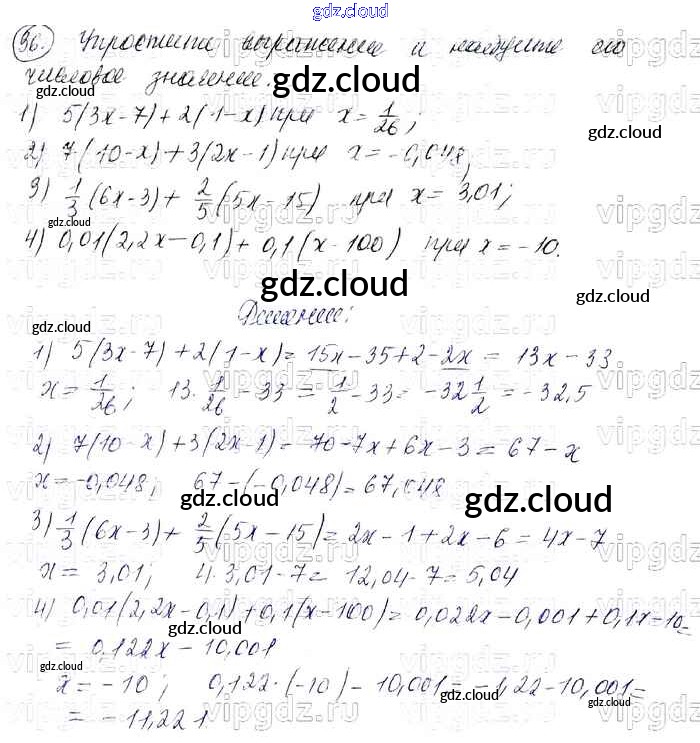 gdz.cloud
36. Упростите выражение и найдите его
числовое значение.
1) 5(3x-7)+2(1-x) при x = 1/26;
2) 7(10-x)+3(2x-1) при x = -0,048;
3) 1/3(6x-3)+ 2/5(5x-15) при x = 3,01;
4) 0,01(2,2x-0,1)+0,1(x-100) при x = -10.
gdz.cloud
Решение:
1) 5(3x-7)+2(1-x) = 15x-35+2-2x = 13x-33
x = 1/26; 13·1/26-33 = 1/2-33 = -32 1/2 = -32,5
2) 7(10-x)+3(2x-1) = 70-7x+6x-3 = 67-x
x = -0,048; 67-(-0,048) = 67,048
gdz.cloud
3) 1/3(6x-3)+ 2/5(5x-15) = 2x-1+2x-6 = 4x-7
x = 3,01; 4·3,01-7 = 12,04-7 = 5,04
4) 0,01(2,2x-0,1)+0,1(x-100) = 0,022x-0,001+0,1x-10=
= 0,122x-10,001
x = -10; 0,122·(-10)-10,001 = -1,22-10,001=
= -11,221